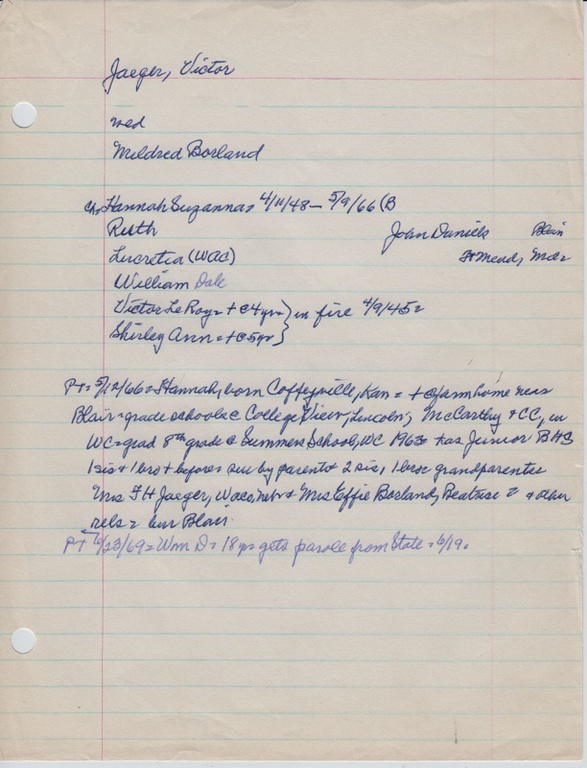 Jaeger, Victor
wed
Mildred Borland
ch= Hannah Suzanna= 4/11/48 - 5/9/66 (B
Ruth Joan Daniels Blair
Lucretia (WAC) Ft Meade, Md=
William Dale
Victor LeRoy= + @ 4 yrs } in fire 4/9/45=
Shirley Ann = + @ 5 yr }
PT= 5/12/66= Hannah, born Coffeyville, Kan = + @ farm home near
Blair= grade schools @ College View, Lincoln; McCarthy + CC, in
WC= grad 8th grade @ Summers School, WC 1963= was Junior BHS
1 sis + 1 bro + before= sur by parents 2 sis, 1 bro= grandparents
Mrs F H Jaeger, Waco, Nebr + Mrs Effie Borland, Beatrice = + other
rels = bur Blair.
PT 6/23/69= Wm D= 18 yrs gets parole from State = 6/19.